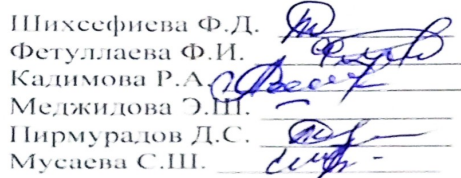 Шихсефиева Ф.Д.
Фетуллаева Ф.И.
Кадимова Р.А.
Меджидова Э.Ш.
Пирмурадов Д.С.
Мусаева С.Ш.